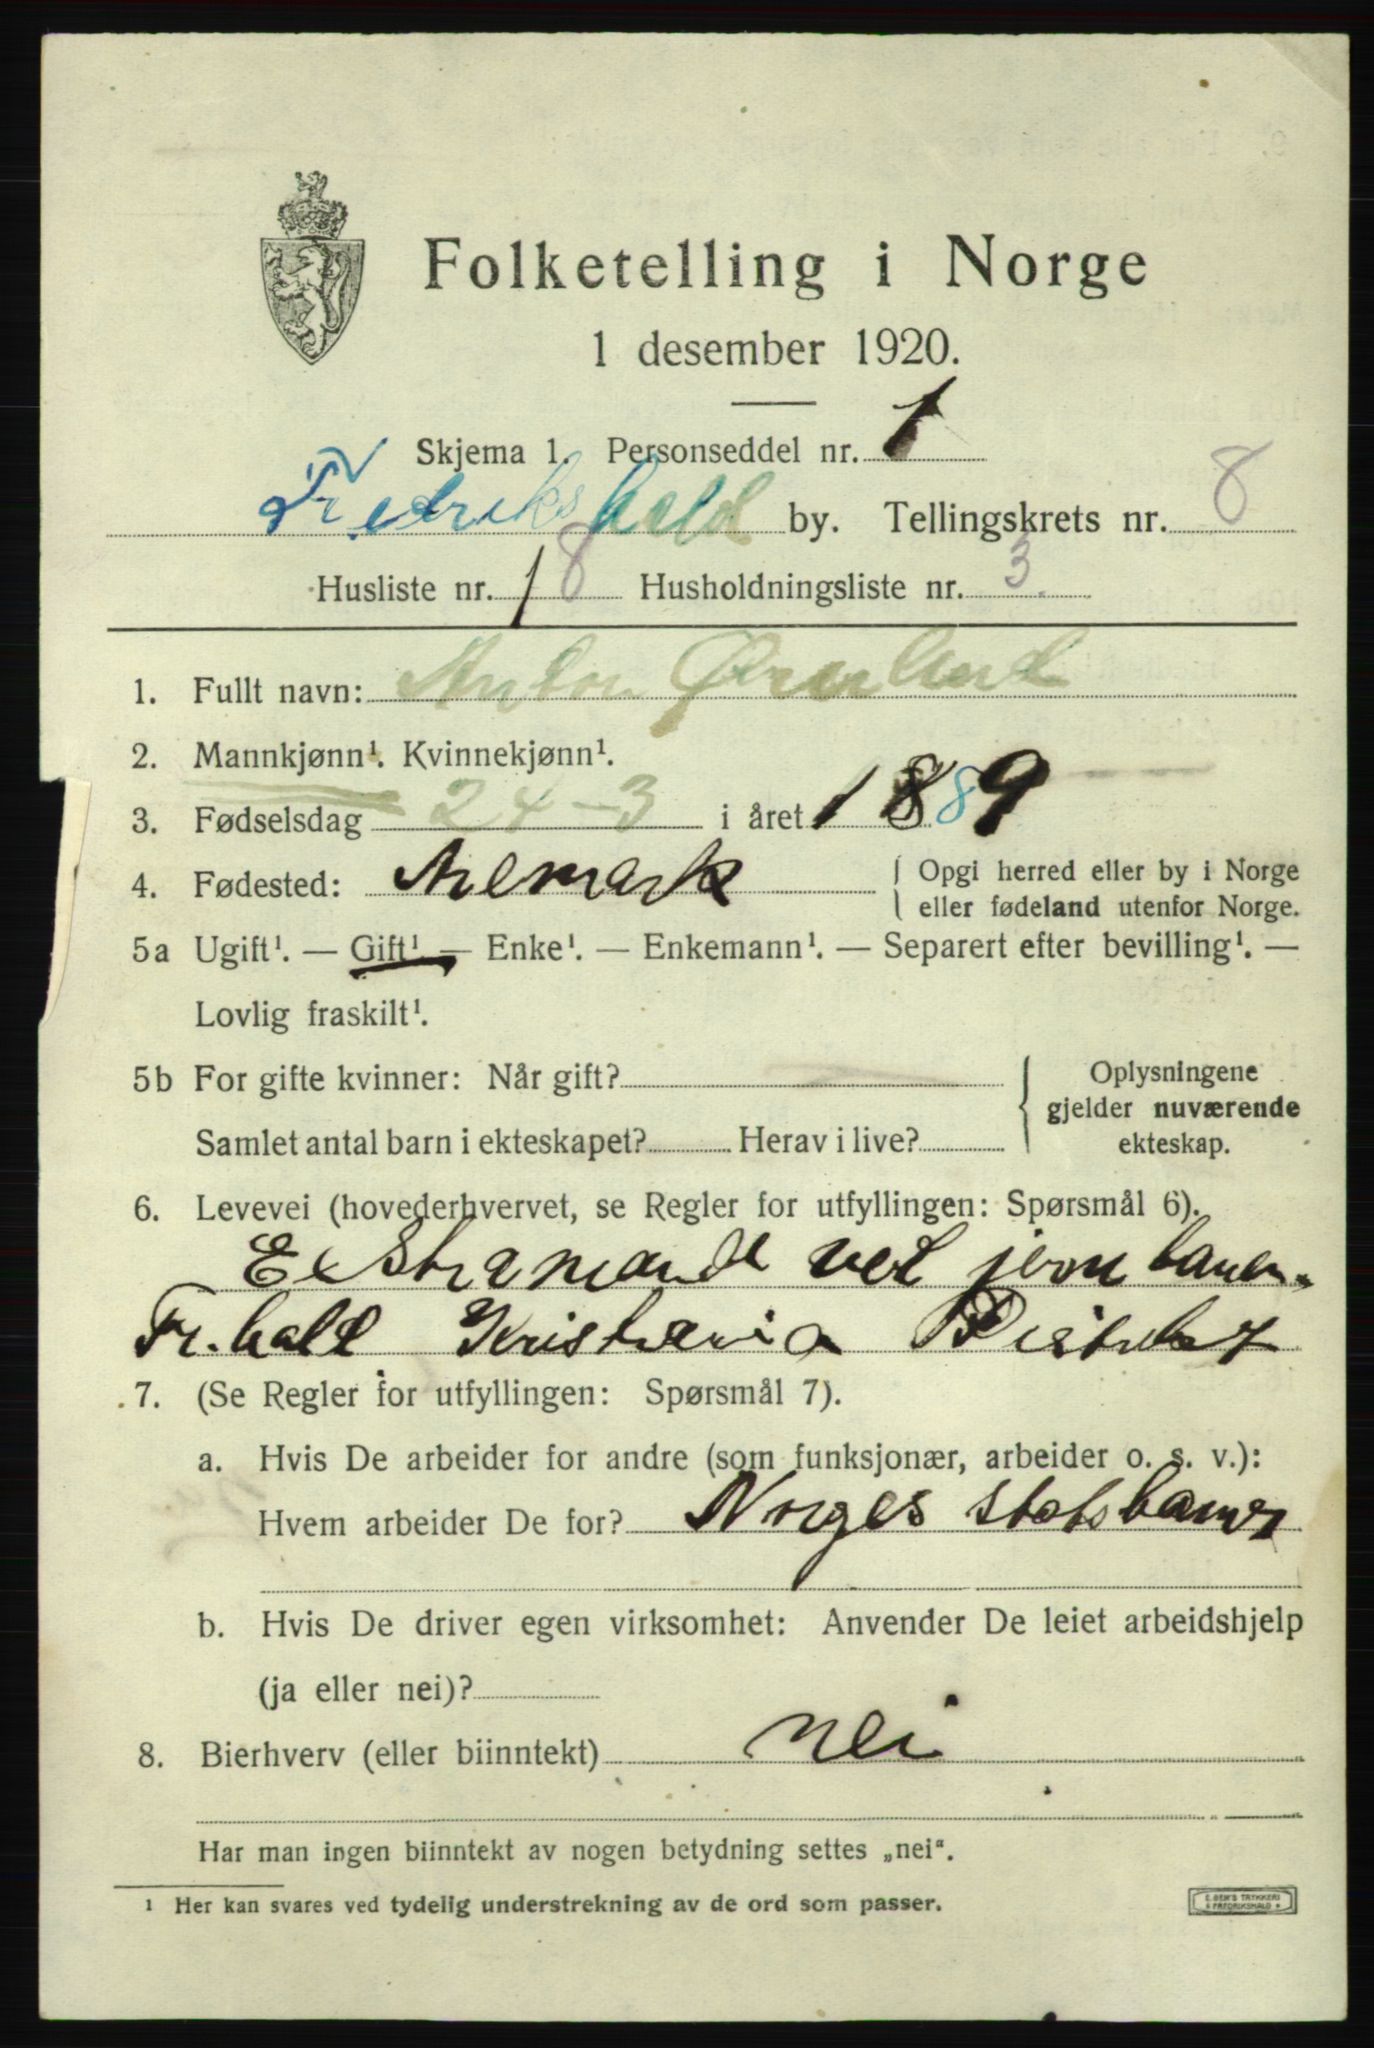 Folketelling i Norge
1 desember 1920.
Skjema 1. Personseddel nr. 1
Fredrikshald by. Tellingskrets nr. 8
Husliste nr. 18 Husholdningsliste nr. 3.
1. Fullt navn: Anton
2. Mannkjønn¹. Kvinnekjønn¹.
3. Fødselsdag 24-3 i året 1889
4. Fødested: Aremark { Opgi herred eller by i Norge
eller fødeland utenfor Norge.
5a Ugift¹. — Gift¹ — Enke¹. — Enkemann¹. — Separert efter bevilling¹. —
Lovlig fraskilt¹.
5b For gifte kvinner: Når gift?
Samlet antal barn i ekteskapet? Herav i live?
Oplysningene
gjelder nuværende
ekteskap.
6. Levevei (hovederhvervet, se Regler for utfyllingen: Spørsmål 6).
Ekstramand ved jernbanen
Fr.hald Kristiania Distrikt
7. (Se Regler for utfyllingen: Spørsmål 7).
a. Hvis De arbeider for andre (som funksjonær, arbeider o. s. v.):
Hvem arbeider De for? Norges statsbaner
b. Hvis De driver egen virksomhet: Anvender De leiet arbeidshjelp
(ja eller nei)?
8. Bierhverv (eller biinntekt) nei
Har man ingen biinntekt av nogen betydning settes „nei“.
¹ Her kan svares ved tydelig understrekning av de ord som passer.
E. SEM'S TRYKKERI
FREDRIKSHALD